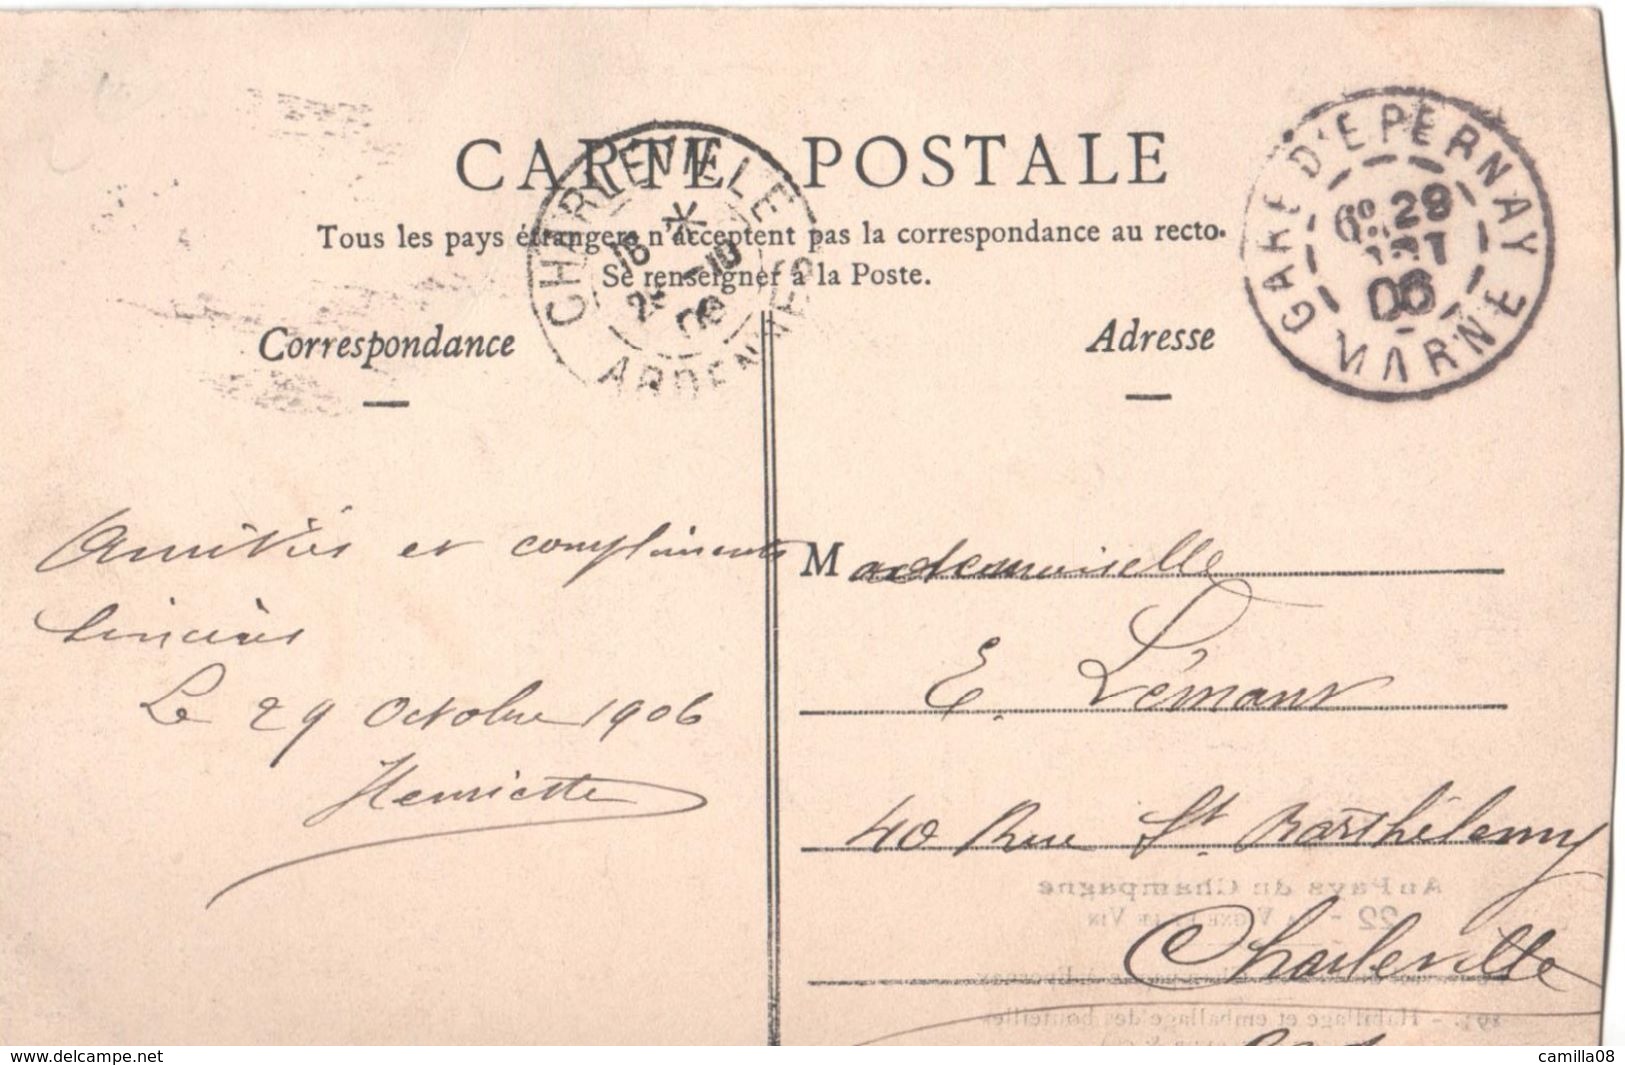 CARTE POSTALE
Tous les pays étrangers n'acceptent pas la correspondance au recto.
Se renseigner à la Poste.
Correspondance
Adresse
CHARLEVILLE
ARDENNES
GARE D'EPERNAY
6° 29
06
MARNE
Amitiés et compliments
sincères
Le 29 Octobre 1906
Henriette
Mademoiselle
E. Lémant
40 Rue St. Barthélemy
Charleville
Au Pays du Champagne
22 - La Vigne et le Vin
Habillage et emballage des bouteilles
www.delcampe.net
camilla08